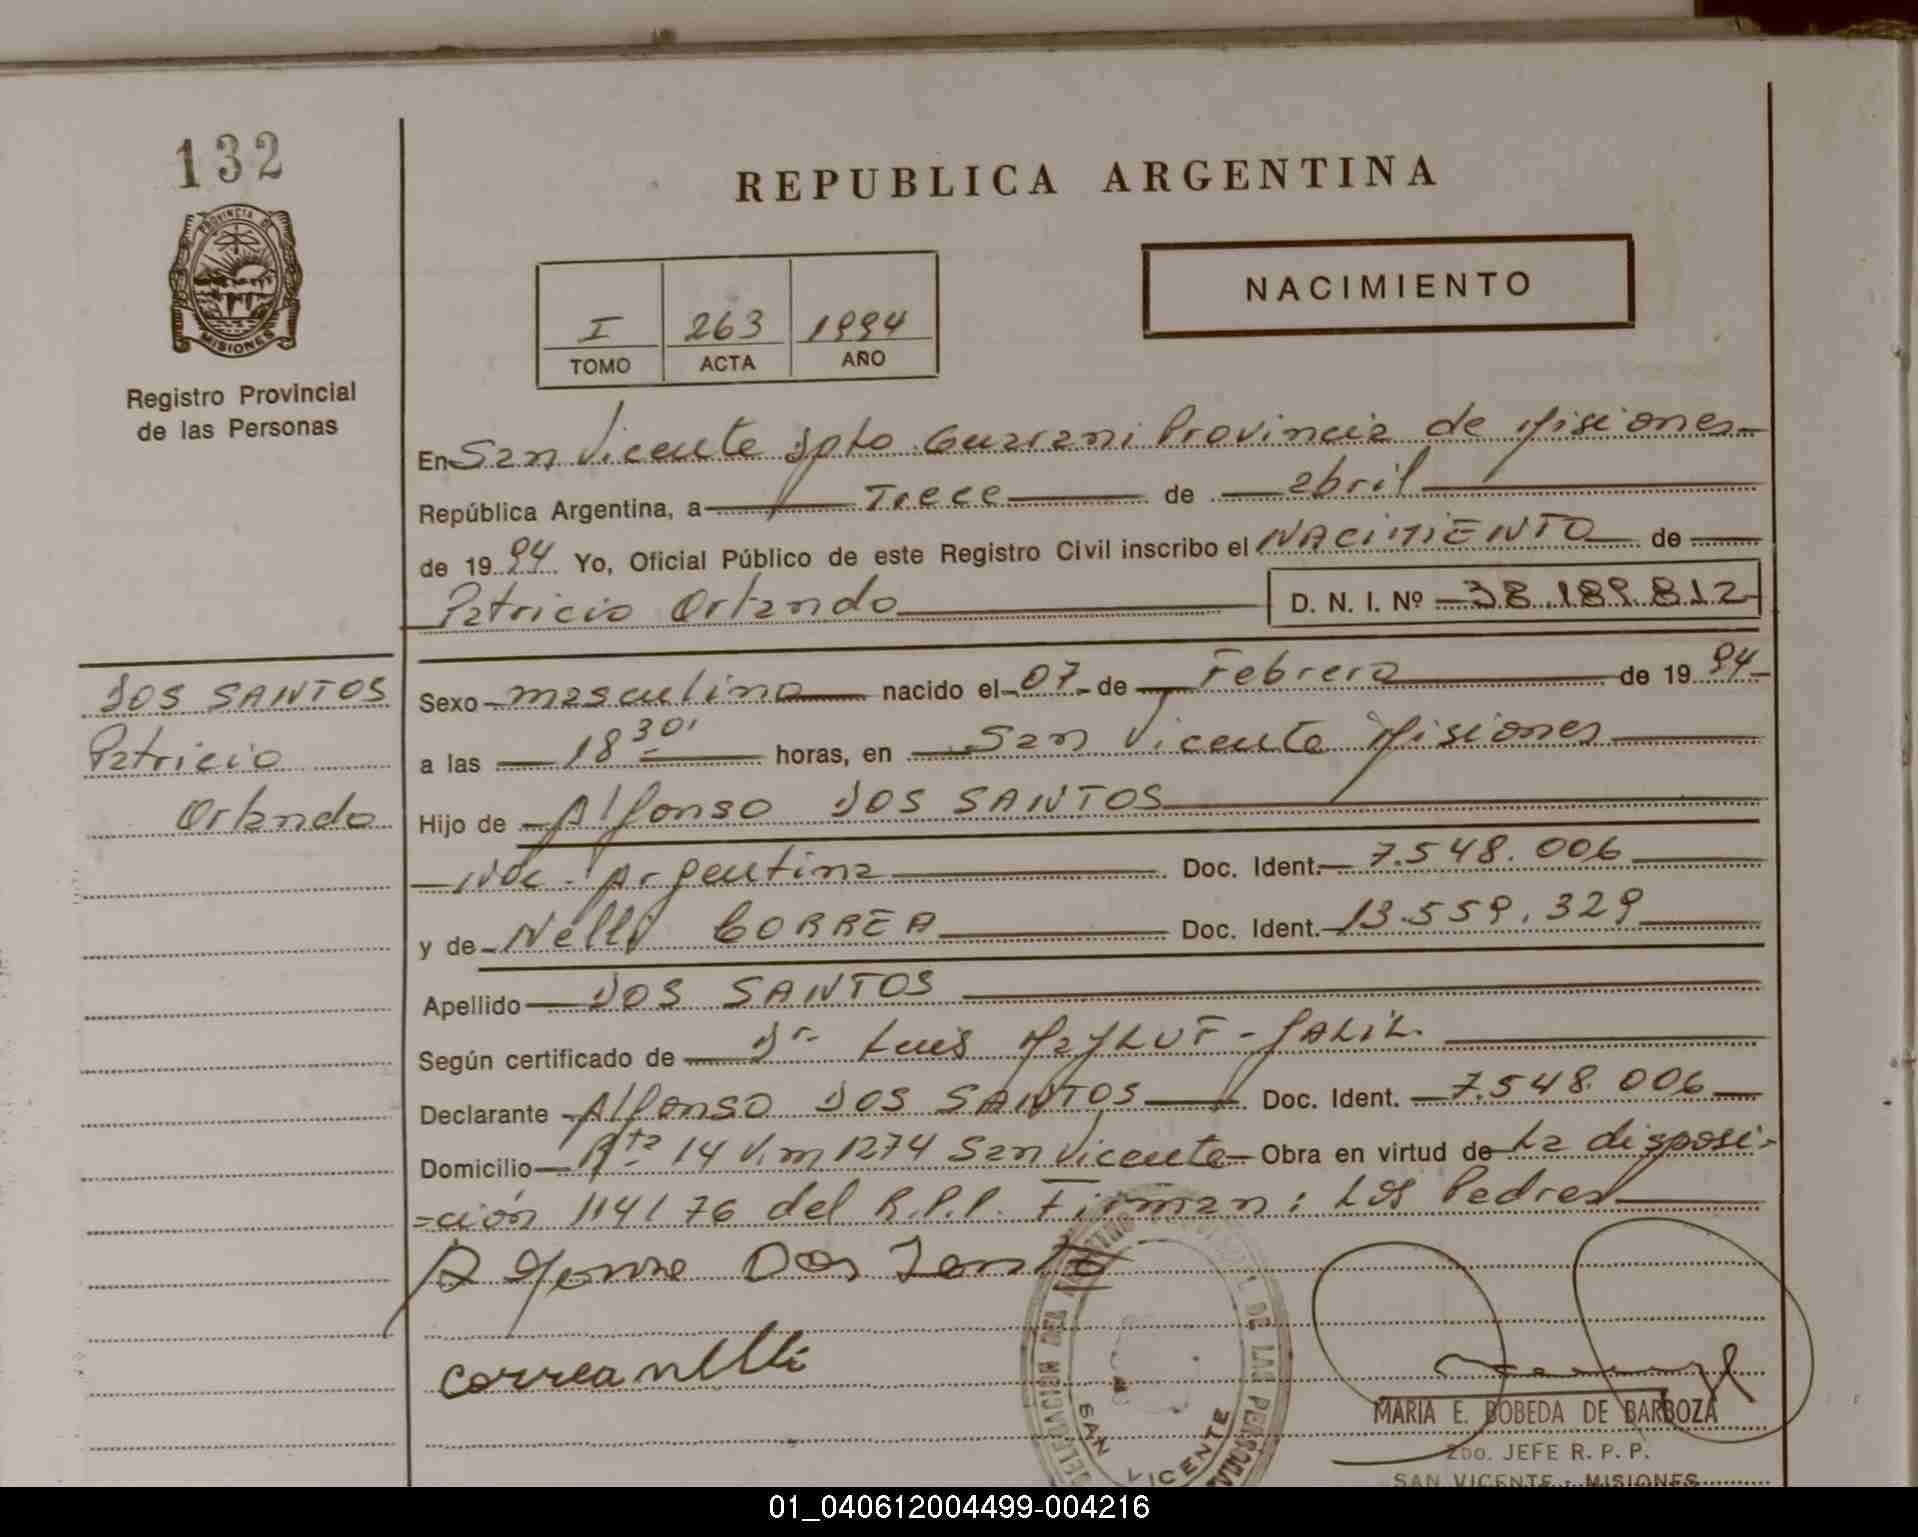 132
PROVINCIA DE
MISIONES
Registro Provincial
de las Personas
REPUBLICA ARGENTINA
NACIMIENTO
I 263 1994
TOMO ACTA AÑO
En San Vicente Dpto Guarani Provincia de Misiones
República Argentina, a Trece de abril
de 1994 Yo, Oficial Público de este Registro Civil inscribo el NACIMIENTO de
Patricio Orlando D. N. I. Nº 38.189.812
DOS SANTOS
Patricio
Orlando
Sexo masculino nacido el 07 de Febrero de 1994
a las 18 30' horas, en San Vicente Misiones
Hijo de Alfonso DOS SANTOS
Nac. Argentina Doc. Ident. 7.548.006
y de Nelli CORREA Doc. Ident. 13.559.329
Apellido DOS SANTOS
Según certificado de Dr Luis MAJLUF - JALIL.
Declarante Alfonso DOS SANTOS Doc. Ident. 7.548.006
Domicilio Rta 14 Km 1274 San Vicente Obra en virtud de La disposi-
=ción 114/76 del R.P.P. Firman: Los Padres
Alfonso Dos Santo
correa nelli
DELEGACION DEL DE LAS PERSONAS
SAN VICENTE
MARIA E. BOBEDA DE BARBOZA
2DO. JEFE R. P. P.
SAN VICENTE - MISIONES
01_040612004499-004216